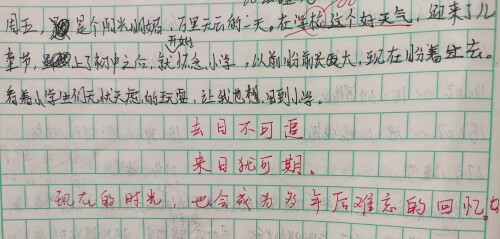 周五,是个阳光灿烂,万里无云的一天。在这样这个好天气,迎来了儿
童节,上了初中之后,就怀念小学,以前盼着长大,现在盼着过去。
开始
看着小学生们无忧无虑的玩耍,让我也想回到小学。
去日不可追
来日犹可期。
现在的时光,也会成为多年后难忘的回忆。